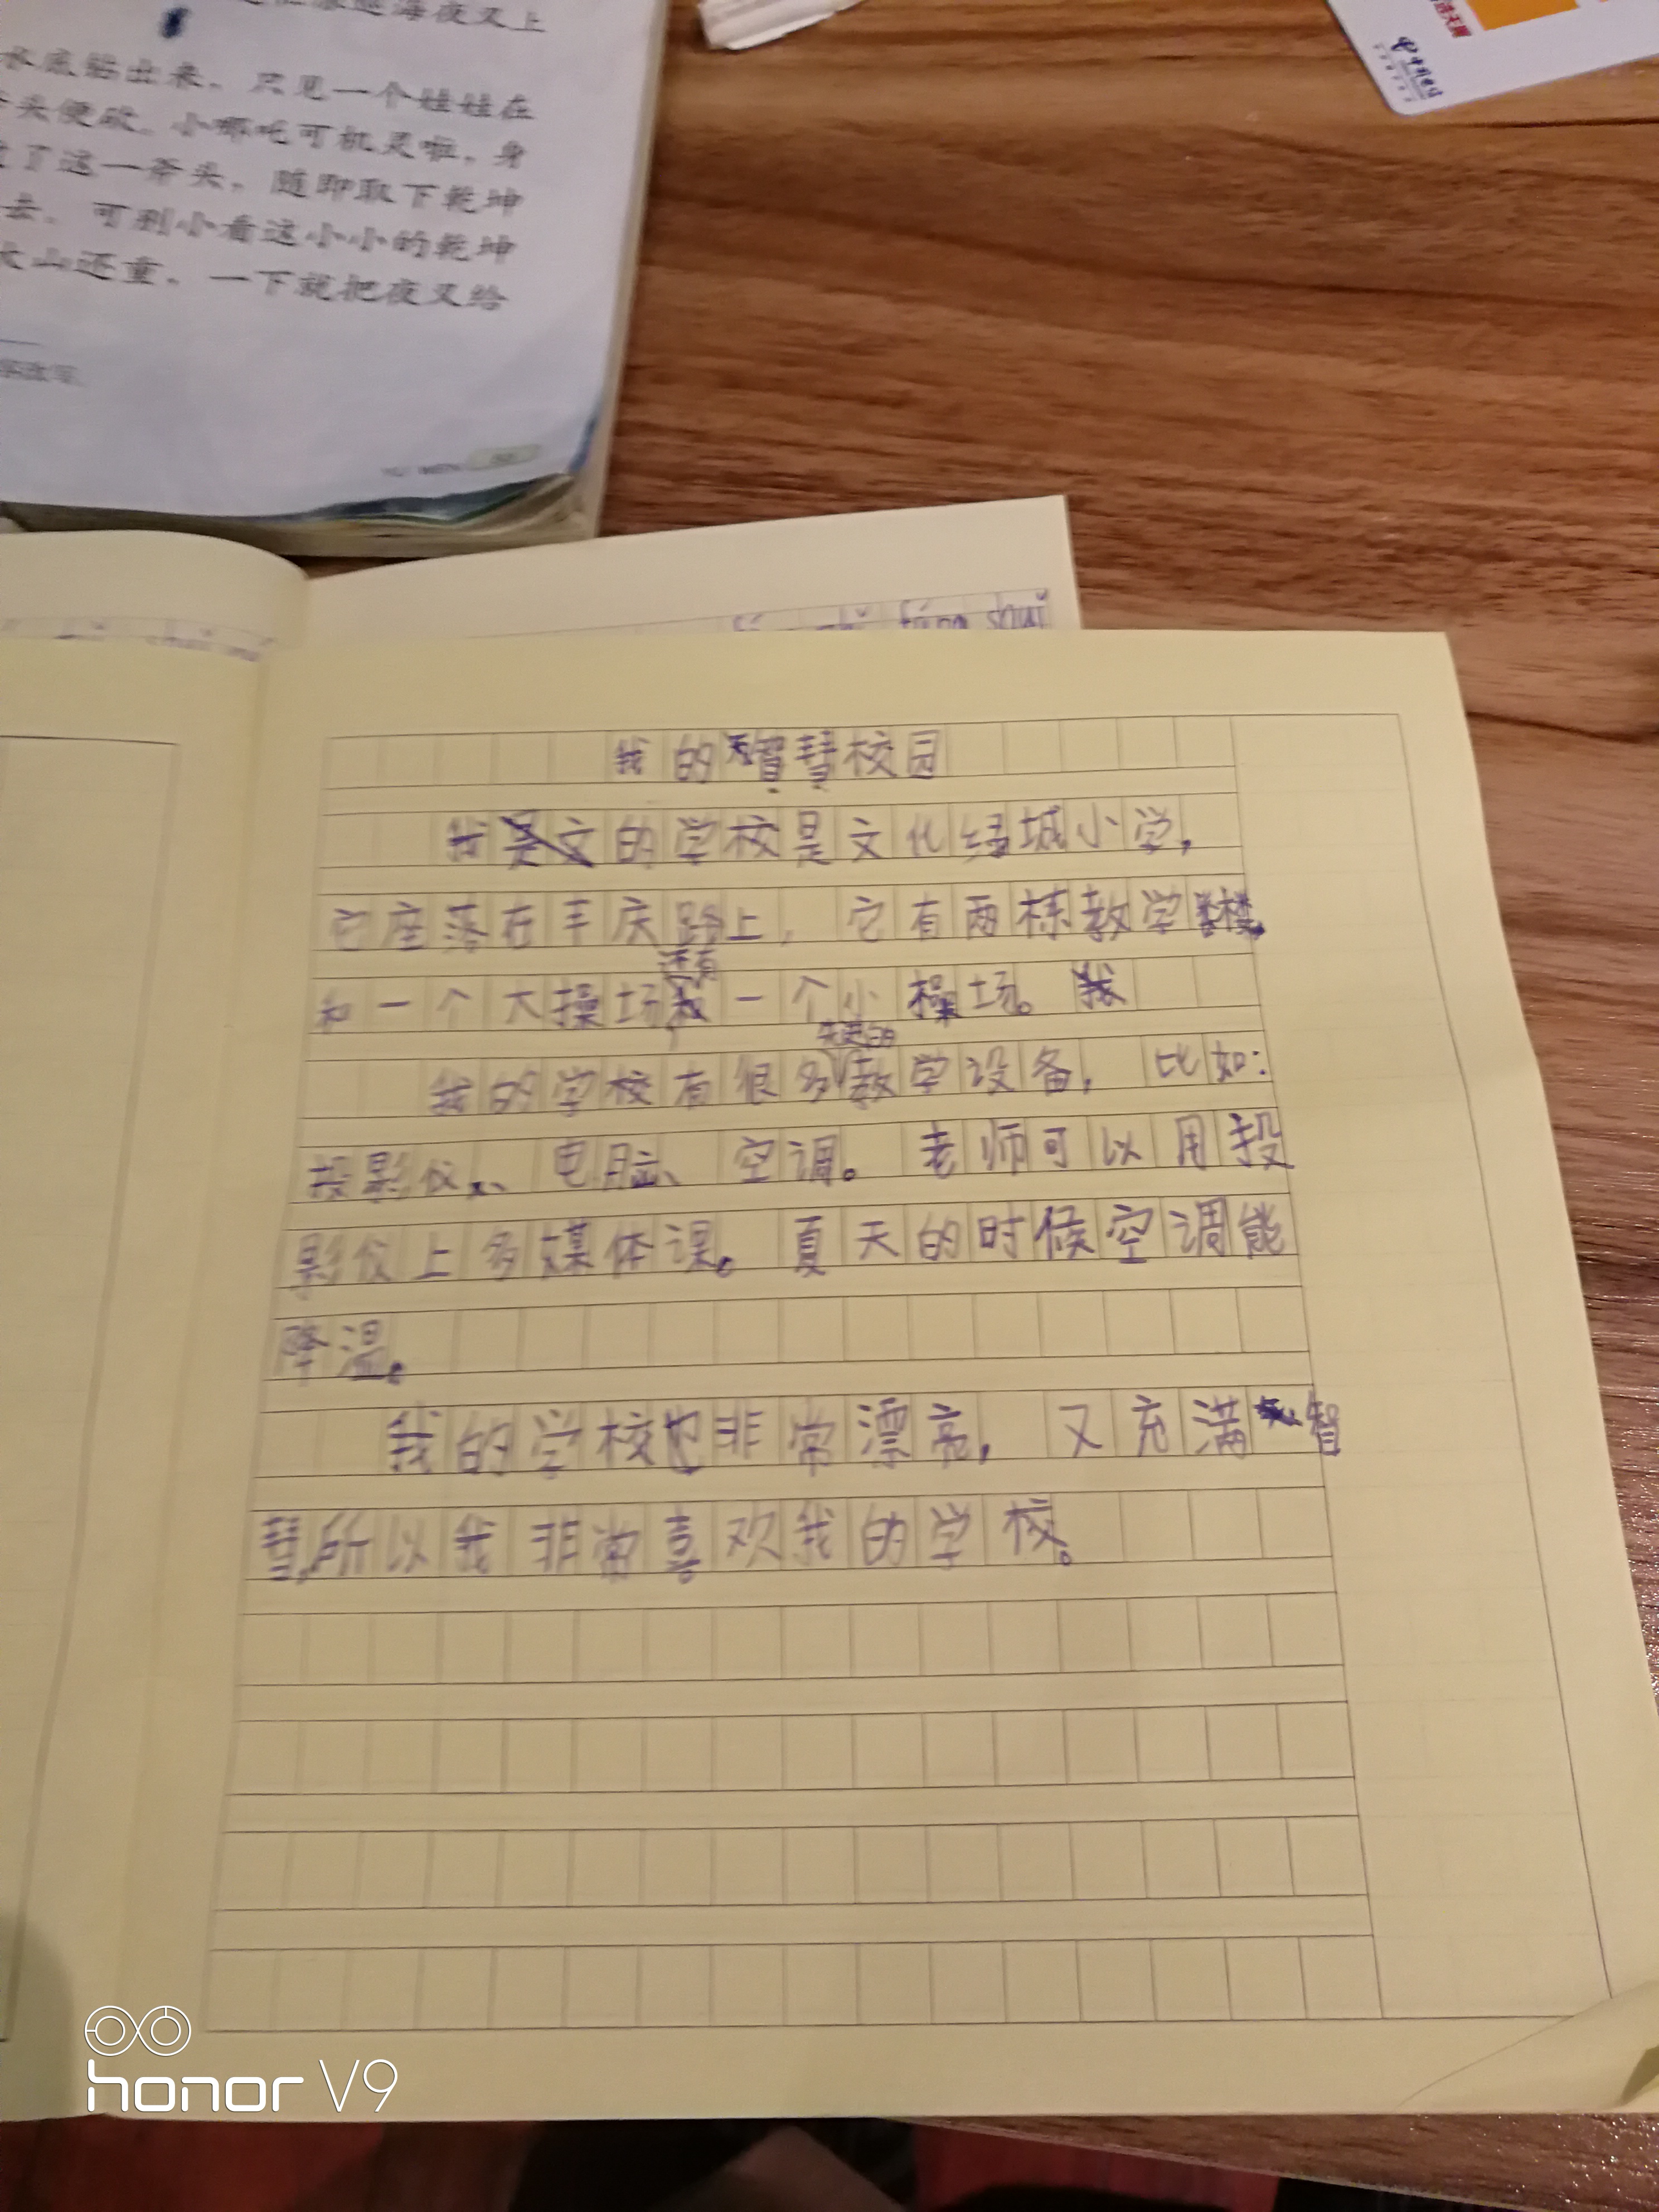 海夜叉上
水底钻出来，只见一个娃娃在
斧头便砍。小哪吒可机灵啦，身
了这一斧头，随即取下乾坤
去。可别小看这小小的乾坤
大山还重，一下就把夜叉给
改写
YU WEN
中国电信
fáng shuǐ
我的智慧校园
我的学校是文化绿城小学，
它座落在丰庆路上，它有两栋教学楼，
和一个大操场还有一个小操场。
我的学校有很多先进的教学设备，比如：
投影仪、电脑、空调。老师可以用投
影仪上多媒体课。夏天的时候空调能
降温。
我的学校也非常漂亮，又充满智
慧，所以我非常喜欢我的学校。
honor V9